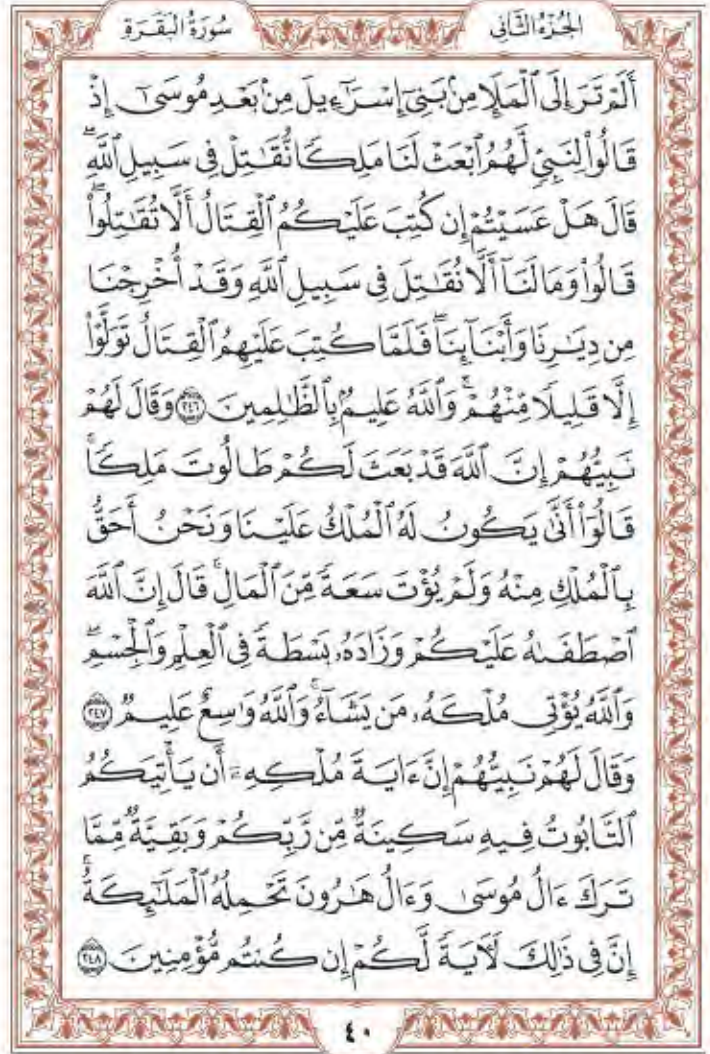 الجزء الثاني سورة البقرة
أَلَمْ تَرَ إِلَى ٱلْمَلَإِ مِنۢ بَنِىٓ إِسْرَٰٓءِيلَ مِنۢ بَعْدِ مُوسَىٰٓ إِذْ
قَالُوا۟ لِنَبِىٍّ لَّهُمُ ٱبْعَثْ لَنَا مَلِكًا نُّقَٰتِلْ فِى سَبِيلِ ٱللَّهِۖ
قَالَ هَلْ عَسَيْتُمْ إِن كُتِبَ عَلَيْكُمُ ٱلْقِتَالُ أَلَّا تُقَٰتِلُوا۟ۖ
قَالُوا۟ وَمَا لَنَآ أَلَّا نُقَٰتِلَ فِى سَبِيلِ ٱللَّهِ وَقَدْ أُخْرِجْنَا
مِن دِيَٰرِنَا وَأَبْنَآئِنَاۖ فَلَمَّا كُتِبَ عَلَيْهِمُ ٱلْقِتَالُ تَوَلَّوْا۟
إِلَّا قَلِيلًا مِّنْهُمْۗ وَٱللَّهُ عَلِيمٌۢ بِٱلظَّٰلِمِينَ ٢٤٦ وَقَالَ لَهُمْ
نَبِيُّهُمْ إِنَّ ٱللَّهَ قَدْ بَعَثَ لَكُمْ طَالُوتَ مَلِكًاۚ
قَالُوٓا۟ أَنَّىٰ يَكُونُ لَهُ ٱلْمُلْكُ عَلَيْنَا وَنَحْنُ أَحَقُّ
بِٱلْمُلْكِ مِنْهُ وَلَمْ يُؤْتَ سَعَةً مِّنَ ٱلْمَالِۚ قَالَ إِنَّ ٱللَّهَ
ٱصْطَفَىٰهُ عَلَيْكُمْ وَزَادَهُۥ بَسْطَةً فِى ٱلْعِلْمِ وَٱلْجِسْمِۖ
وَٱللَّهُ يُؤْتِى مُلْكَهُۥ مَن يَشَآءُۚ وَٱللَّهُ وَٰسِعٌ عَلِيمٌ ٢٤٧
وَقَالَ لَهُمْ نَبِيُّهُمْ إِنَّ ءَايَةَ مُلْكِهِۦٓ أَن يَأْتِيَكُمُ
ٱلتَّابُوتُ فِيهِ سَكِينَةٌ مِّن رَّبِّكُمْ وَبَقِيَّةٌ مِّمَّا
تَرَكَ ءَالُ مُوسَىٰ وَءَالُ هَٰرُونَ تَحْمِلُهُ ٱلْمَلَٰٓئِكَةُۚ
إِنَّ فِى ذَٰلِكَ لَءَايَةً لَّكُمْ إِن كُنتُم مُّؤْمِنِينَ ٢٤٨
٤٠